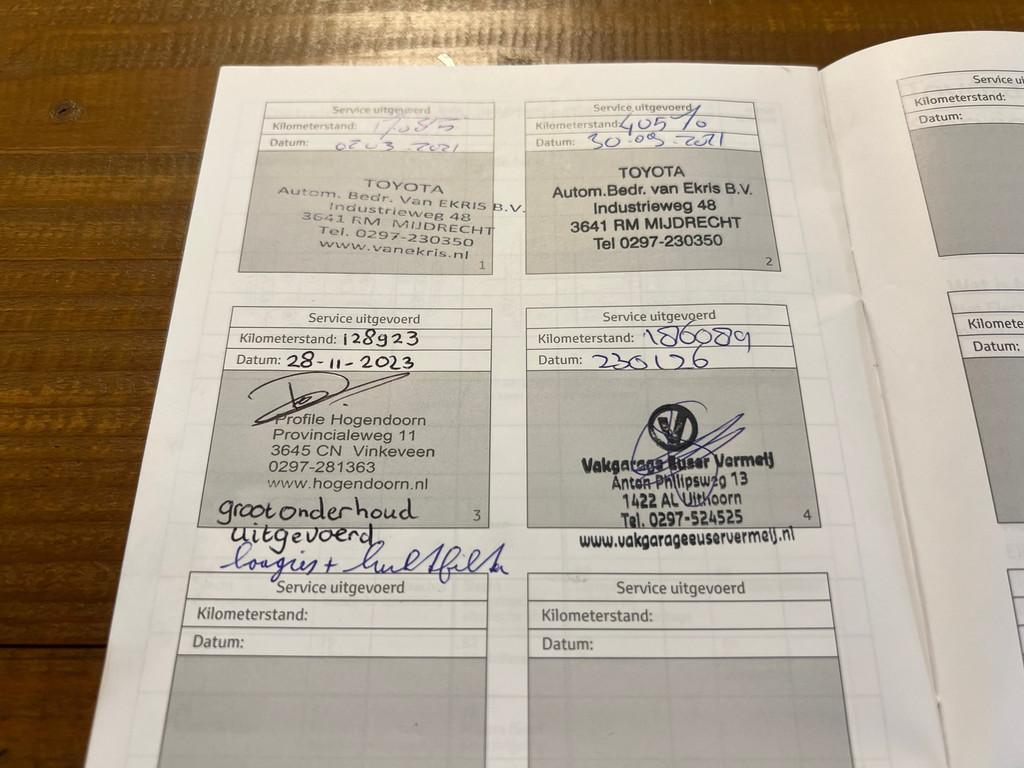 Service uitgevoerd
Kilometerstand:
Datum: 02 03 · 2021
TOYOTA
Autom. Bedr. Van EKRIS B.V.
Industrieweg 48
3641 RM MIJDRECHT
Tel. 0297-230350
www.vanekris.nl
1
Service uitgevoerd
Kilometerstand: 405
Datum: 30·09·2021
TOYOTA
Autom.Bedr. van Ekris B.V.
Industrieweg 48
3641 RM MIJDRECHT
Tel 0297-230350
2
Service uitgevoerd
Kilometerstand: 128923
Datum: 28-11-2023
Profile Hogendoorn
Provincialeweg 11
3645 CN Vinkeveen
0297-281363
www.hogendoorn.nl
3
groot onderhoud
uitgevoerd
Service uitgevoerd
Kilometerstand: 186089
Datum: 230126
Vakgarage Euser Vermeij
Anton Philipsweg 13
1422 AL Uithoorn
Tel. 0297-524525
www.vakgarageeuservermeij.nl
4
Service uitgevoerd
Kilometerstand:
Datum:
Service uitgevoerd
Kilometerstand:
Datum:
Service ui
Kilometerstand:
Datum:
Kilomete
Datum: